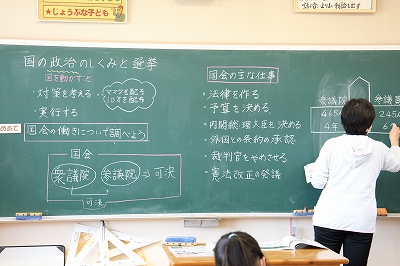 ★じょうぶな子ども
国の政治のしくみと選挙
国を動かすこと
・対策を考える
マスクを配る
10万を配る
・実行する
めあて 国会の働きについて調べよう
国会
衆議院 参議院 ⇒ 可決
可決
国会の主な仕事
・法律を作る
・予算を決める
・内閣総理大臣を決める
・外国との条約の承認
・裁判官をやめさせる
・憲法改正の発議
衆議院 参議
465 245
4年 6